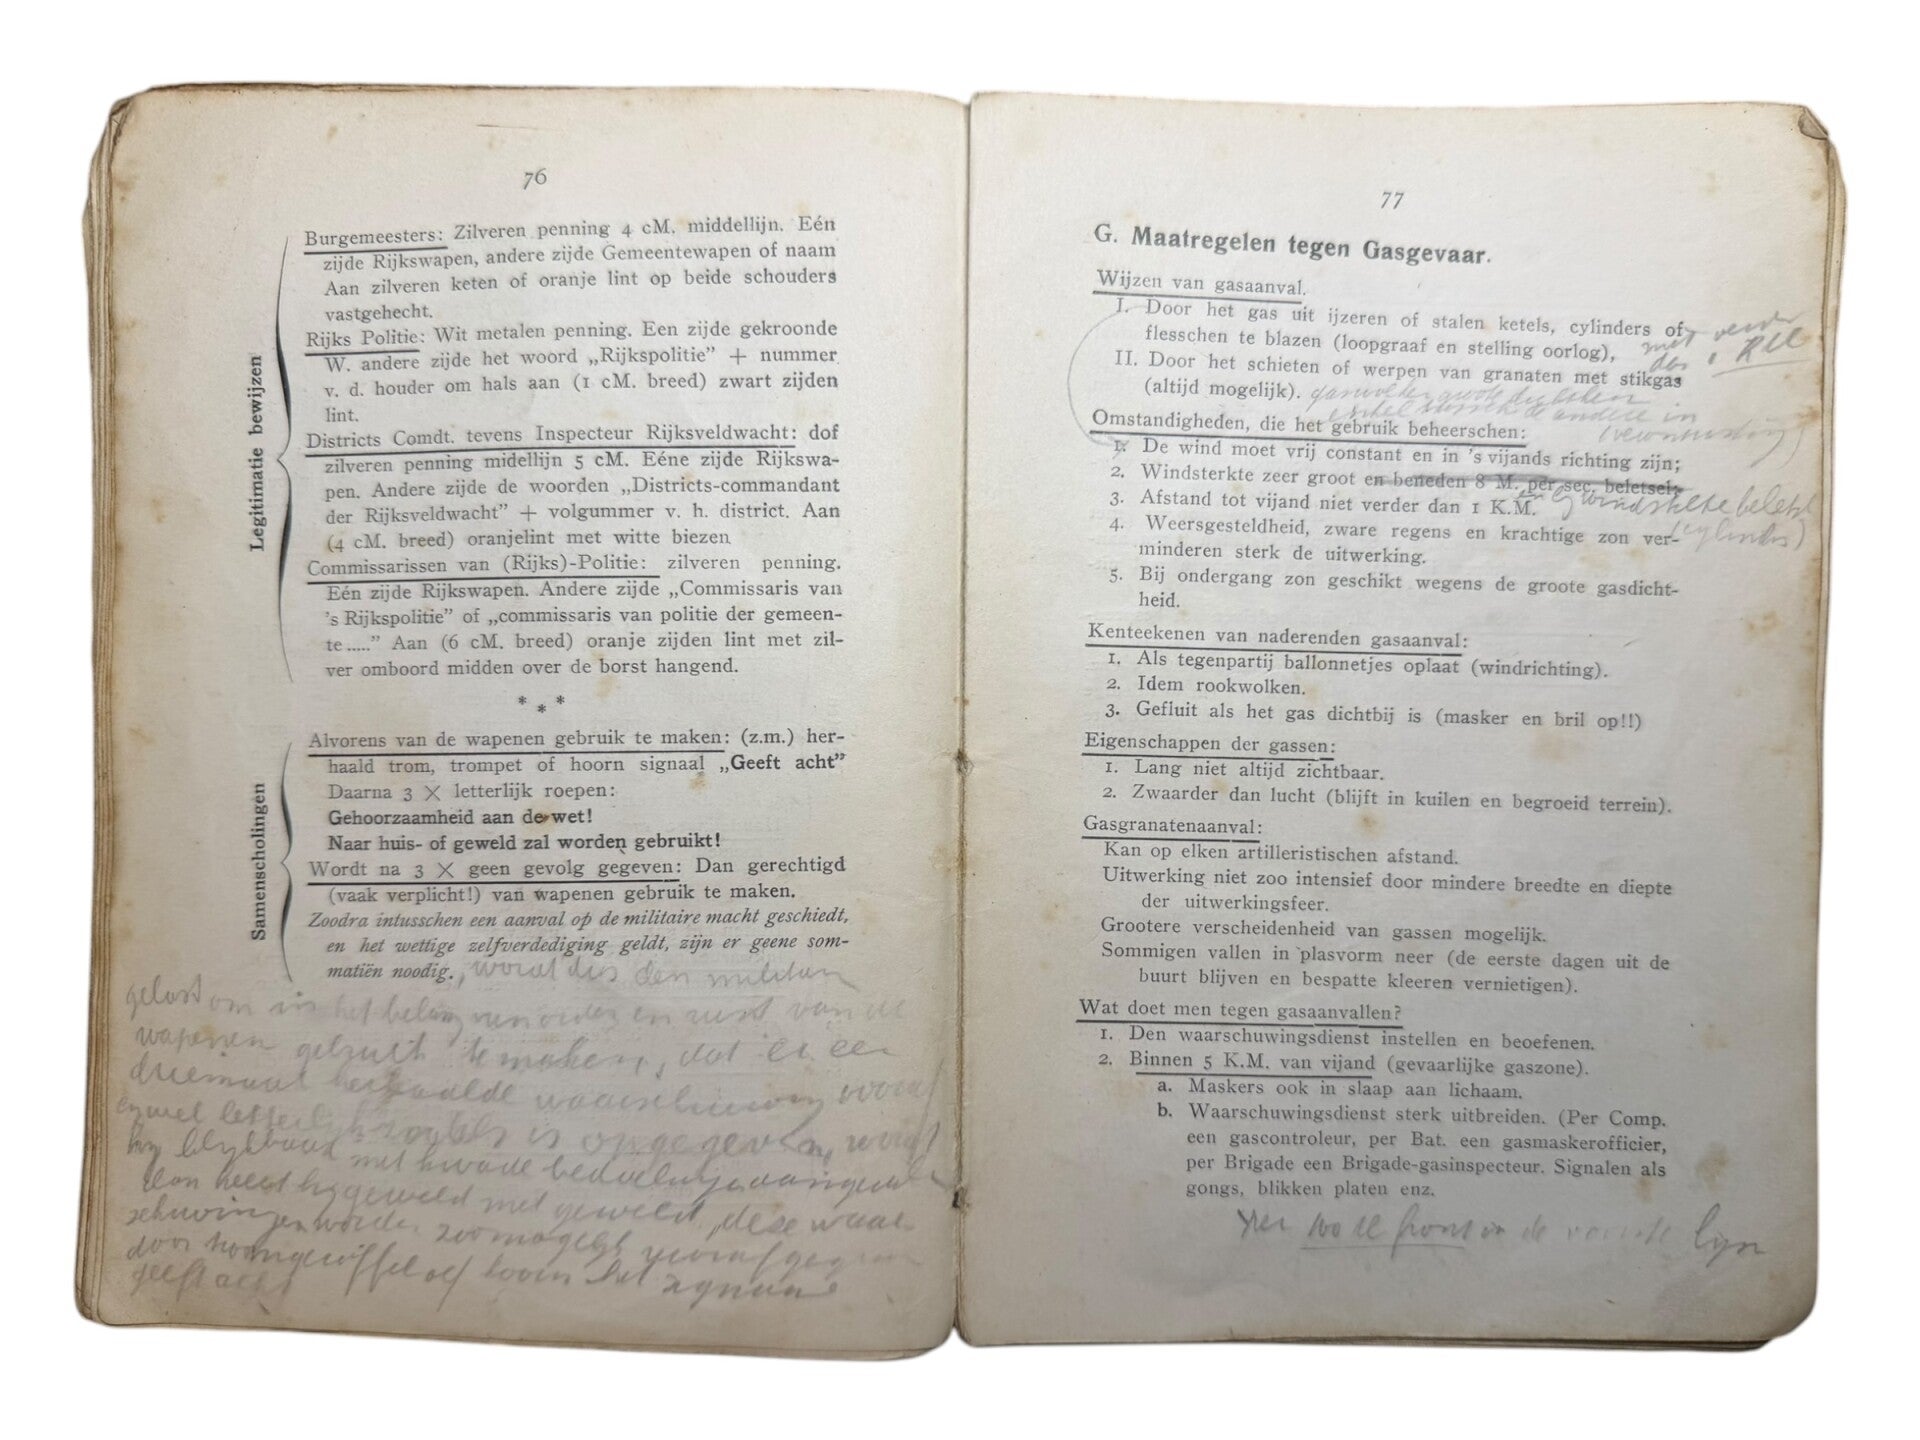 76
Legitimatie bewijzen
Burgemeesters: Zilveren penning 4 cM. middellijn. Eén
zijde Rijkswapen, andere zijde Gemeentewapen of naam
Aan zilveren keten of oranje lint op beide schouders
vastgehecht.
Rijks Politie: Wit metalen penning. Een zijde gekroonde
W. andere zijde het woord „Rijkspolitie” + nummer
v. d. houder om hals aan (1 cM. breed) zwart zijden
lint.
Districts Comdt. tevens Inspecteur Rijksveldwacht: dof
zilveren penning midellijn 5 cM. Eéne zijde Rijkswa-
pen. Andere zijde de woorden „Districts-commandant
der Rijksveldwacht” + volgummer v. h. district. Aan
(4 cM. breed) oranjelint met witte biezen
Commissarissen van (Rijks)-Politie: zilveren penning.
Eén zijde Rijkswapen. Andere zijde „Commissaris van
's Rijkspolitie” of „commissaris van politie der gemeen-
te .....” Aan (6 cM. breed) oranje zijden lint met zil-
ver omboord midden over de borst hangend.
* * *
Samenscholingen
Alvorens van de wapenen gebruik te maken: (z.m.) her-
haald trom, trompet of hoorn signaal „Geeft acht”
Daarna 3 × letterlijk roepen:
Gehoorzaamheid aan de wet!
Naar huis- of geweld zal worden gebruikt!
Wordt na 3 × geen gevolg gegeven: Dan gerechtigd
(vaak verplicht!) van wapenen gebruik te maken.
Zoodra intusschen een aanval op de militaire macht geschiedt,
en het wettige zelfverdediging geldt, zijn er geene som-
matiën noodig., wordt dus den
gelast om in het belang van orde en rust van de
wapenen gebruik te maken, dat is een
driemaal herhaalde waarschuwing vooraf
letterlijk is opgegeven, wordt
hij blijkbaar met kwade bedoeling
dan keert hij geweld met geweld, deze waar-
schuwingen worden zoo mogelijk vooraf
door of hoorn het signaal
geeft acht
77
G. Maatregelen tegen Gasgevaar.
Wijzen van gasaanval.
I. Door het gas uit ijzeren of stalen ketels, cylinders of
flesschen te blazen (loopgraaf en stelling oorlog),
met
II. Door het schieten of werpen van granaten met stikgas
(altijd mogelijk).
Omstandigheden, die het gebruik beheerschen:
1. De wind moet vrij constant en in 's vijands richting zijn;
2. Windsterkte zeer groot en beneden 8 M. per sec. beletsel;
en bij windstilte belet
3. Afstand tot vijand niet verder dan 1 K.M.
4. Weersgesteldheid, zware regens en krachtige zon ver-
minderen sterk de uitwerking.
5. Bij ondergang zon geschikt wegens de groote gasdicht-
heid.
Kenteekenen van naderenden gasaanval:
1. Als tegenpartij ballonnetjes oplaat (windrichting).
2. Idem rookwolken.
3. Gefluit als het gas dichtbij is (masker en bril op!!)
Eigenschappen der gassen:
1. Lang niet altijd zichtbaar.
2. Zwaarder dan lucht (blijft in kuilen en begroeid terrein).
Gasgranatenaanval:
Kan op elken artilleristischen afstand.
Uitwerking niet zoo intensief door mindere breedte en diepte
der uitwerkingsfeer.
Grootere verscheidenheid van gassen mogelijk.
Sommigen vallen in plasvorm neer (de eerste dagen uit de
buurt blijven en bespatte kleeren vernietigen).
Wat doet men tegen gasaanvallen?
1. Den waarschuwingsdienst instellen en beoefenen.
2. Binnen 5 K.M. van vijand (gevaarlijke gaszone).
a. Maskers ook in slaap aan lichaam.
b. Waarschuwingsdienst sterk uitbreiden. (Per Comp.
een gascontroleur, per Bat. een gasmaskerofficier,
per Brigade een Brigade-gasinspecteur. Signalen als
gongs, blikken platen enz.
Per 100 front in de voorste lijn